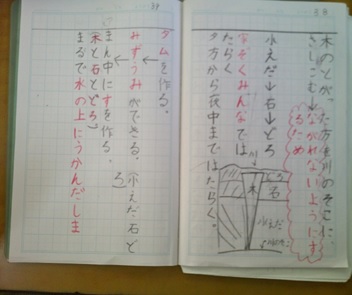 38
木のとがった方を川のそこに、
さしこむ。ながれないようにす
るため
小えだ→石→どろ
家ぞくみんなでは
たらく
夕方から夜中まではたらく。
川
木
石
どろ
小えだ
39
ダムを作る。
↓
みずうみができる。
↓
まん中にすを作る。
小えだ石と
どろ
(木と石とどろ)
まるで水の上にうかんだしま